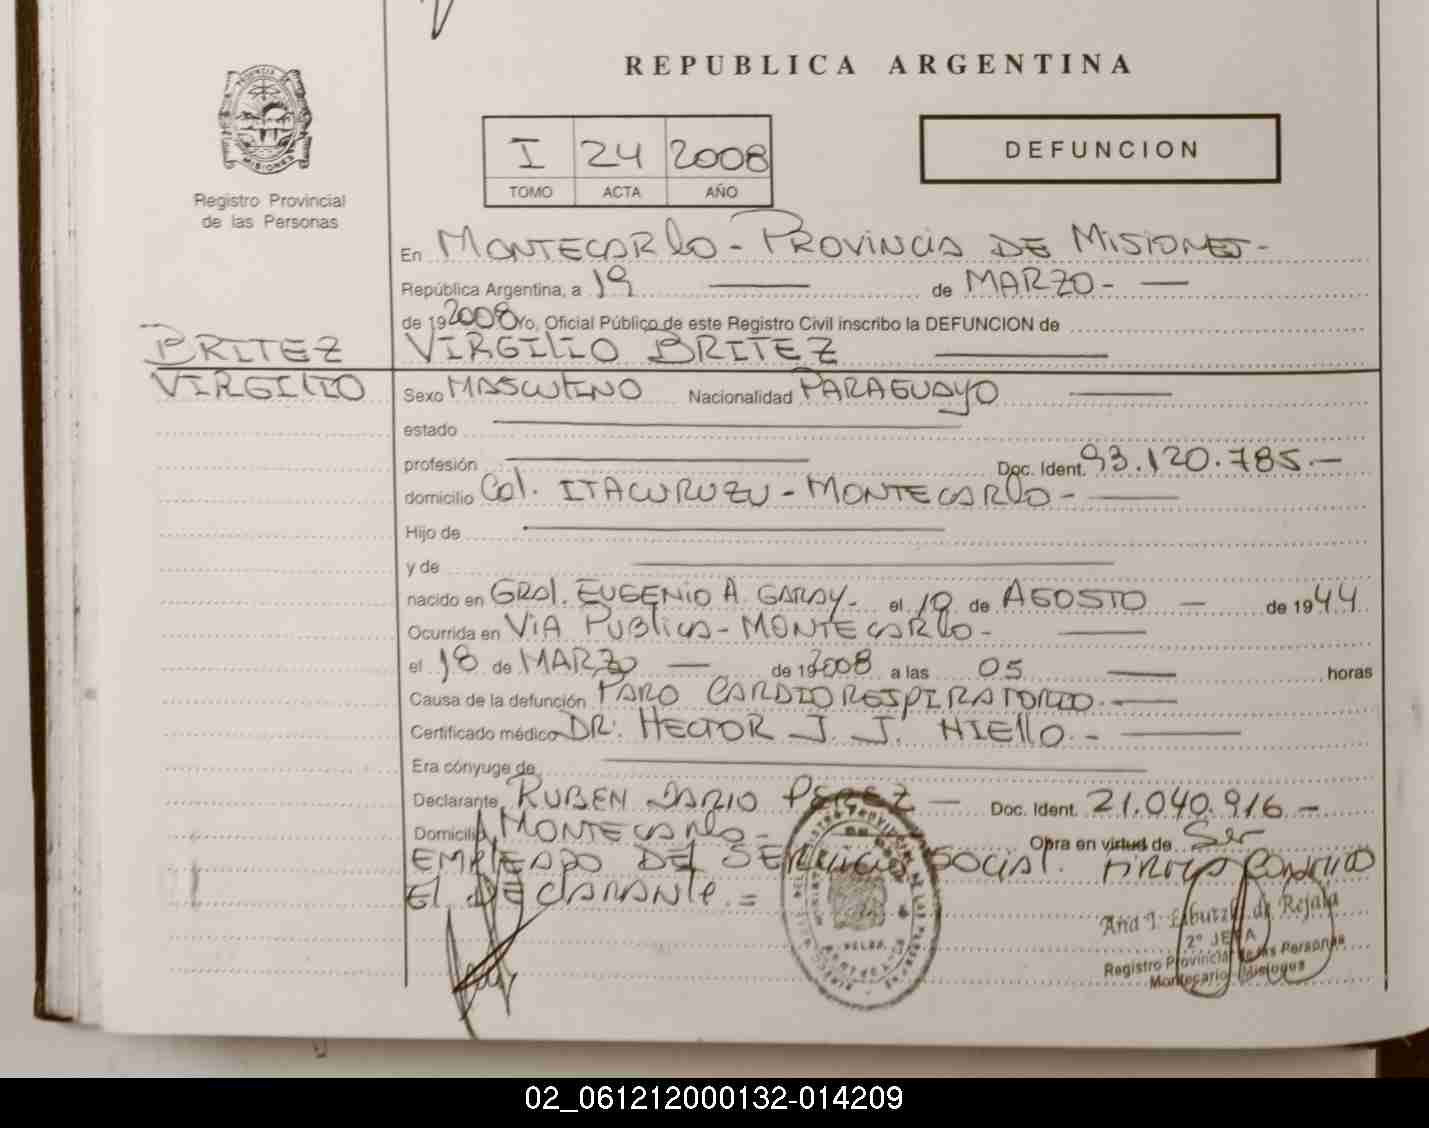 REPUBLICA ARGENTINA
PROVINCIA DE
MISIONES
Registro Provincial
de las Personas
I 24 2008
TOMO ACTA AÑO
DEFUNCION
En MONTECARLO - PROVINCIA DE MISIONES -
República Argentina, a 19 de MARZO -
de 192008 Yo, Oficial Público de este Registro Civil inscribo la DEFUNCION de
BRITEZ VIRGILIO BRITEZ
VIRGILIO Sexo MASCULINO Nacionalidad PARAGUAYO
estado
profesión Doc. Ident. 93.120.785.-
domicilio Col. ITACURUZU - MONTECARLO -
Hijo de
y de
nacido en GRAL. EUGENIO A. GARAY - el 10 de AGOSTO de 1944
Ocurrida en VIA PUBLICA - MONTECARLO -
el 18 de MARZO de 192008 a las 05 horas
Causa de la defunción PARO CARDIORESPIRATORIO.
Certificado médico DR. HECTOR J. J. HIELLO. -
Era cónyuge de
Declarante RUBEN DARIO PEREZ - Doc. Ident. 21.040.916 -
Domicilio MONTECARLO - Obra en virtud de Ser
EMPLEADO DEL SERVICIO SOCIAL. FIRMA CONMIGO
El DECLARANTE. =
2º JEFA
Registro Provincial de las Personas
Montecarlo Misiones
02_061212000132-014209